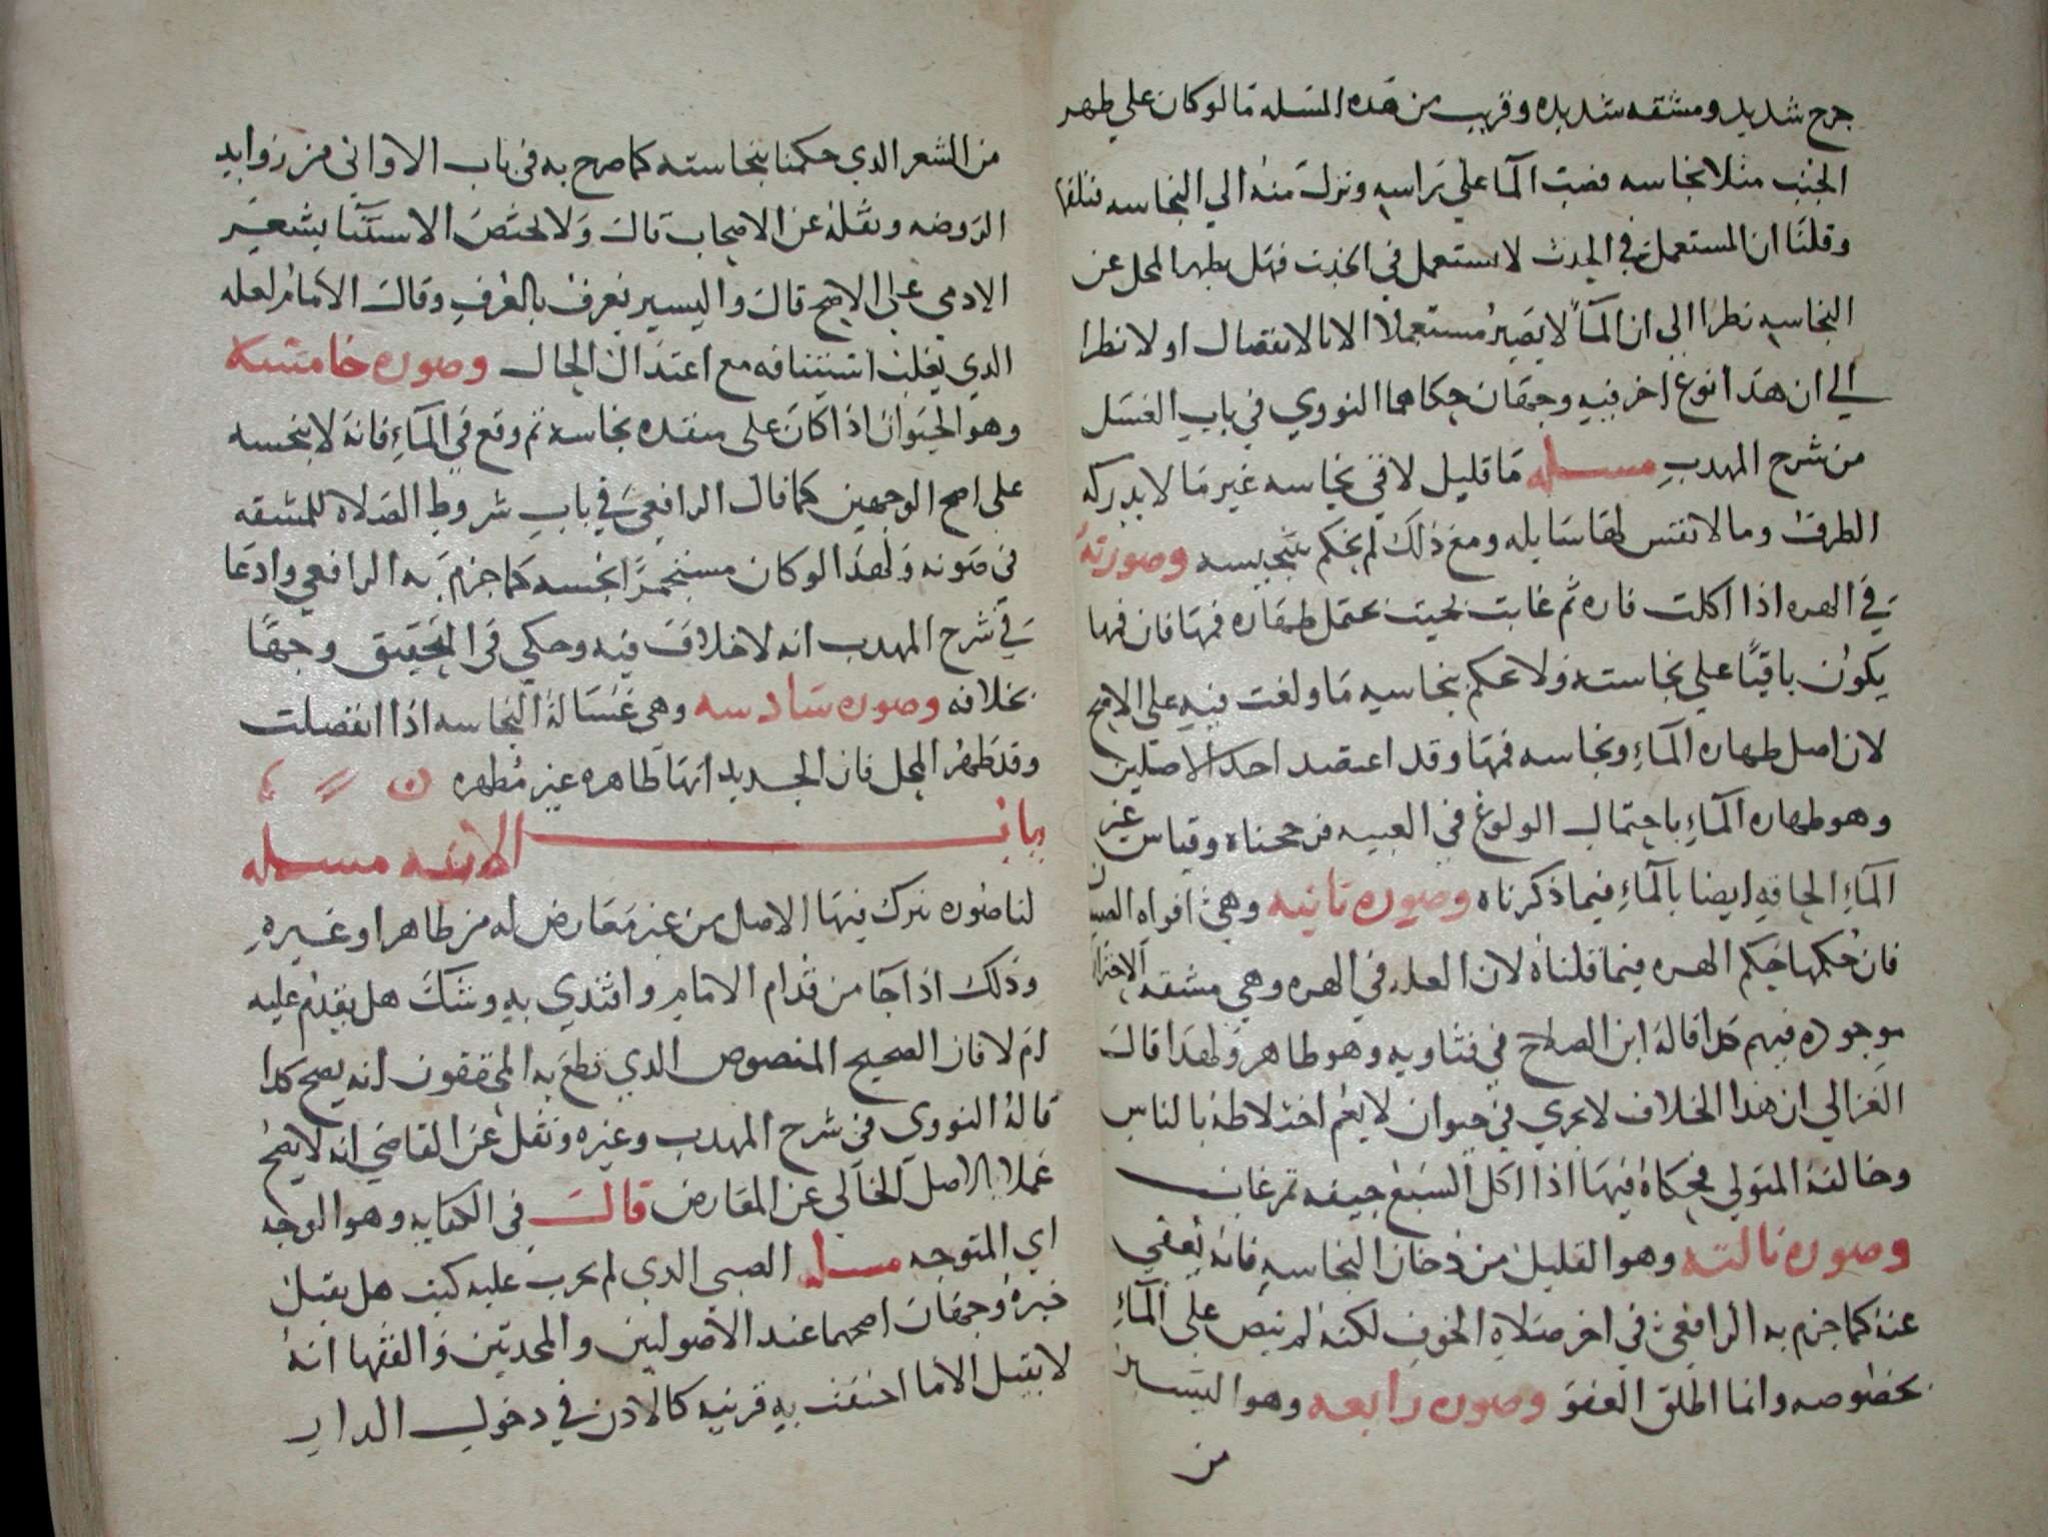 جرح شديد ومشقه شديده وقريب من هده المسله ما لو كان علي طهر
الجنب مثلا نجاسه فصب الما علي راسه ونزل منه الي النجاسه
وقلنا ان المستعمل في الحدث لا يستعمل في الخبث فهل يطهر المحل عن
النجاسه نظرا الي ان المآ لا يصير مستعملا الا بالانفصال او لا نظرا
الي ان هدا نوع اخر فيه وجهان حكاهما النووي في باب الغسل
من شرح المهدب مسله ما قليل لاقي نجاسه غير ما لا يدركه
الطرف وما لا نفس لها سايله ومع ذلك لم يحكم بتنجيسه وصورته
في الهره اذا اكلت فاره ثم غابت بحيث يحتمل طهاره فمها فان فمها
يكون باقيا علي نجاسته ولا يحكم بنجاسه ما ولغت فيه علي الاصح
لان اصل طهاره المآء ونجاسه فمها وقد اعتضد احد الاصلين
وهو طهاره المآء باحتمال الولوغ في الغيبه فرجحناه وقياس غير
المآء الحاقه ايضا بالمآء فيما ذكرناه وصوره ثانيه وهي افواه الصبيان
فان حكمها حكم الهره فيما قلناه لان العله في الهره وهي مشقه الاحتراز
موجوده فيهم كدا قاله ابن الصلاح في فتاويه وهو ظاهر ولهدا قال
الغزالي ان هدا الخلاف لا يجري في حيوان لا يعم اختلاطه بالناس
وخالفه المتولي فحكاه فيها اذا اكل السبع جيفه ثم غاب
وصوره ثالثه وهو القليل من دخان النجاسه فانه يعفي
عنه كما جزم به الرافعي في اخر صلاه الخوف لكنه لم ينص علي المآء
بخصوصه وانما اطلق العفو وصوره رابعه وهو اليسير
من
من الشعر الدي حكمنا بنجاسته كما صرح به في باب الاواني من زوايد
الروضه ونقله عن الاصحاب قال ولا يختص الاستثنا بشعر
الادمي علي الاصح قال واليسير يعرف بالعرف وقال الامام لعله
الدي يغلب انتتافه مع اعتدال الحال وصوره خامسه
وهو الحيوان اذا كان علي منفده نجاسه ثم وقع في المآء فانه لا ينجسه
علي اصح الوجهين كما قال الرافعي في باب شروط الصلاه للمشقه
في صونه ولهدا لو كان مستجمرا نجسه كما جزم به الرافعي وادعا
في شرح المهدب انه لا خلاف فيه وحكي في التحقيق وجها
بخلافه وصوره سادسه وهي غساله النجاسه اذا انفصلت
وقد طهر المحل فان الجديد انها طاهره غير مطهره
باب الانيه مسله
لنا صوره نترك فيها الاصل من غير معارض له من ظاهر او غيره
وذلك اذا جا من قدام الامام واقتدي به وشك هل تقدم عليه
ام لا فان الصحيح المنصوص الدي قطع به المحققون انه يصح كدا
قاله النووي في شرح المهدب وغيره ونقل عن القاضي انه لا يصح
عملا بالاصل الخالي عن المعارض قال في الكفايه وهو الوجه
اي المتوجه مسله الصبي الدي لم يجرب عليه كدب هل يقبل
خبره وجهان اصحهما عند الاصوليين والمحدثين والفقها انه
لا يقبل الا ما احتفت به قرينه كالادن في دخول الدار